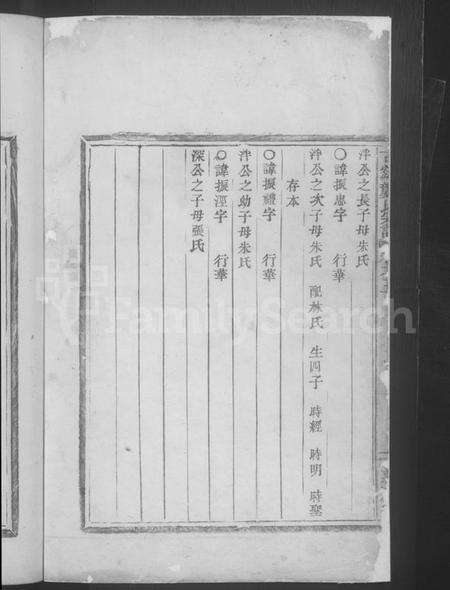 泮公之長子母朱氏
〇諱振忠字 行華
泮公之次子母朱氏 配林氏 生四子 時經 時明 時聖
存本
〇諱振禮字 行華
泮公之幼子母朱氏
〇諱振涇字 行華
深公之子母張氏
FamilySearch